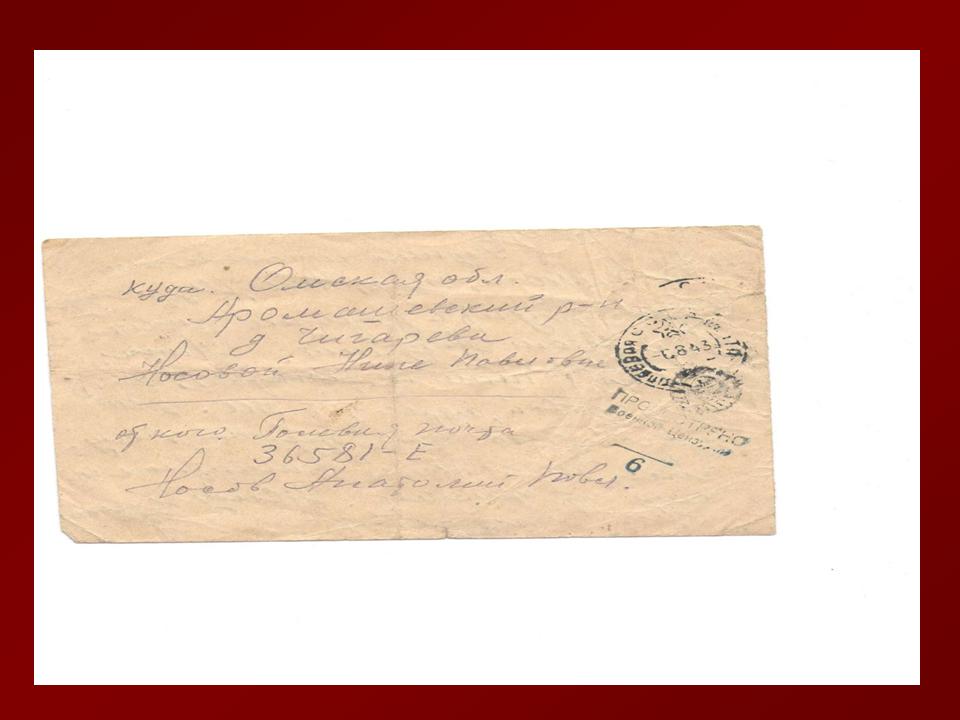 куда. Омская обл.
Аромашевский р-н
д Чигарева
Носовой Нине Павловне
от кого. Полевая почта
36581-Е
Носов Анатолий Павл.
ПОЛЕВАЯ
8 43
ПРОСМОТРЕНО
Военной Цензурой
6